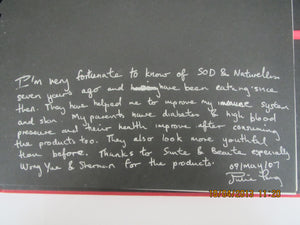 I'm very fortunate to know of SOD & Naturellem
seven years ago and have been eating since
then. They have helped me to improve my immune system
and skin. My parents have diabetes & high blood
pressure and their health improve after consuming
the products too. They also look more youthful
than before. Thanks to & especially
& for the products.
09/may/07
Julie
10/04/2013 11:20